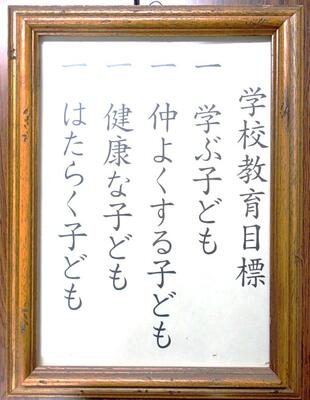 学校教育目標
一 学ぶ子ども
一 仲よくする子ども
一 健康な子ども
一 はたらく子ども